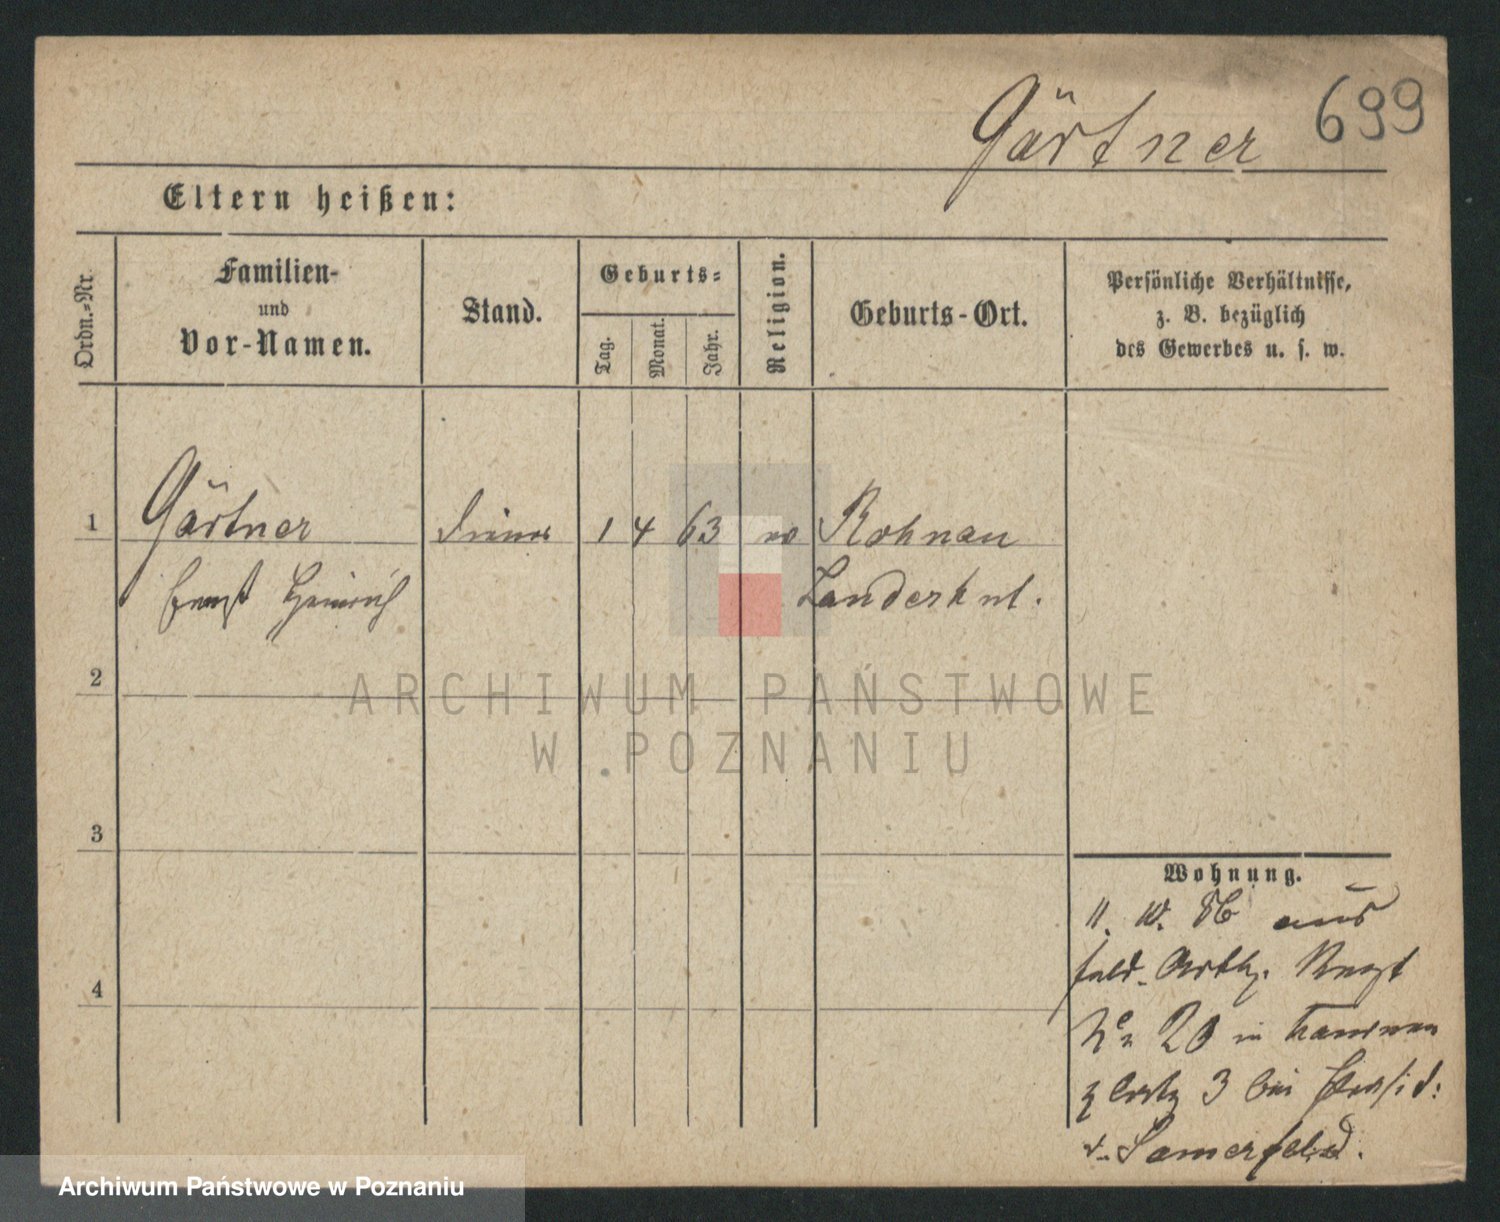 Gärtner 699
Eltern heißen:
Ordn.-Nr.
Familien-
und
Vor-Namen.
Stand.
Geburts-
Tag.
Monat.
Jahr.
Religion.
Geburts-Ort.
Persönliche Verhältnisse,
z. B. bezüglich
des Gewerbes u. s. w.
1 Gärtner Diener 1 4 63 ev Rohnau
Ernst Heinrich Landeshut.
2
3
4
ARCHIWUM PAŃSTWOWE
W POZNANIU
Wohnung.
11. 10. 86 aus
Feld-Artly. Regt
No 20 in
3 bei
v. Somerfeld.
Archiwum Państwowe w Poznaniu